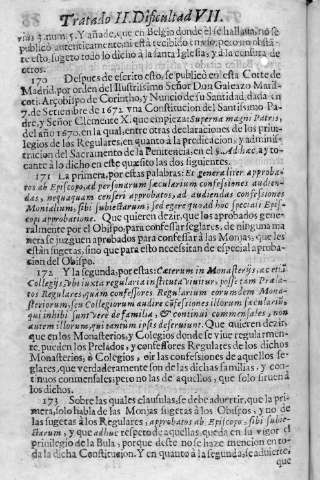 Tratado II. Dificultad VII.
3. num. 5. Y añade, que en Belgio donde el se hallaua, no se
publicó autenticamente, ni està recibido en vso, pero no obstã-
te esto, sugeto todo lo dicho à la santa Iglesia, y à la censura de
otros.
170 Despues de escrito esto, se publicò en esta Corte de
Madrid, por orden del Ilustrissimo Señor Don Galeazo Maris-
coti, Arçobispo de Corintho, y Nuncio de su Santidad, dada en
7. de Setiembre de 1672 vna Constitucion del Santissimo Pa-
dre, y Señor Clemente X. que empieça: Superna magni Patris,
del año 1670. en la qual, entre otras declaraciones de los priui-
legios de los Regulares, en quanto à la predicacion, y adminis-
tracion del Sacramento de la Penitencia, en el §. Ad hæc, ay to-
cante à lo dicho en este quæsito las dos siguientes.
171 La primera, por estas palabras: Et generaliter approba-
tos ab Episcopo, ad personarum sæcularium confessiones audien-
das, nequaquam censeri approbatos, ad audiendas confessiones
Monialium, sibi subiectarum; sed egere quoad hoc speciali Epis-
copi approbatione. Que quieren dezir, que los aprobados gene-
ralmente por el Obispo, para confessar seglares, de ninguna ma
nera se juzguen aprobados para confessar à las Monjas, que les
estàn sugetas, sino que para esto necessitan de especial aproba-
cion del Obispo.
172 Y la segunda, por estas: Cæterum in Monasterijs, ac etiã
Collegijs, vbi iuxta regularia instituta viuitur, posse tam Præla-
tos Regulares, quam confessores Regularium eorumdem Mona-
steriorum, seu Collegiorum audire cõfessiones illorum sæculariũ,
qui inhibi sunt verè de familia, & continui commensales, non
autem illorum, qui tantum ipsis deseruiunt. Que quieren dezir,
que en los Monasterios, y Colegios donde se viue regularmen-
te, pueden los Prelados, y confessores Regulares de los dichos
Monasterios, ò Colegios, oir las confessiones de aquellos se-
glares, que verdaderamente son de las dichas familias, y con-
tinuos commensales; pero no las de aquellos, que solo siruen à
los dichos.
173 Sobre las quales clausulas, se debe aduertir, que la pri-
mera, solo habla de las Monjas sugetas à los Obispos, y no de
las sugetas à los Regulares; approbatos ab Episcopo, sibi subie-
ctarum, y que adhuc respeto de aquellas, queda en su vigor el
priuilegio de la Bula, porque deste no se haze mencion en to-
da la dicha Constitucion. Y en quanto à la segunda, se aduierte,
que